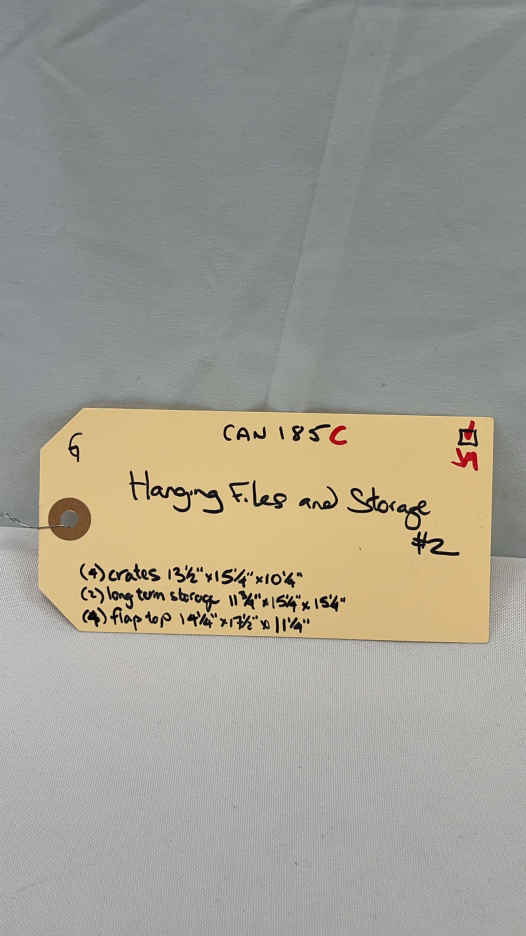 G
CAN 185C
Hanging Files and Storage
#2
(4) crates 13½" x 15¼" x 10¼"
(2) long term storage 11¾" x 15¼" x 15¼"
(4) flap top 14¼" x 17½" x 11¼"